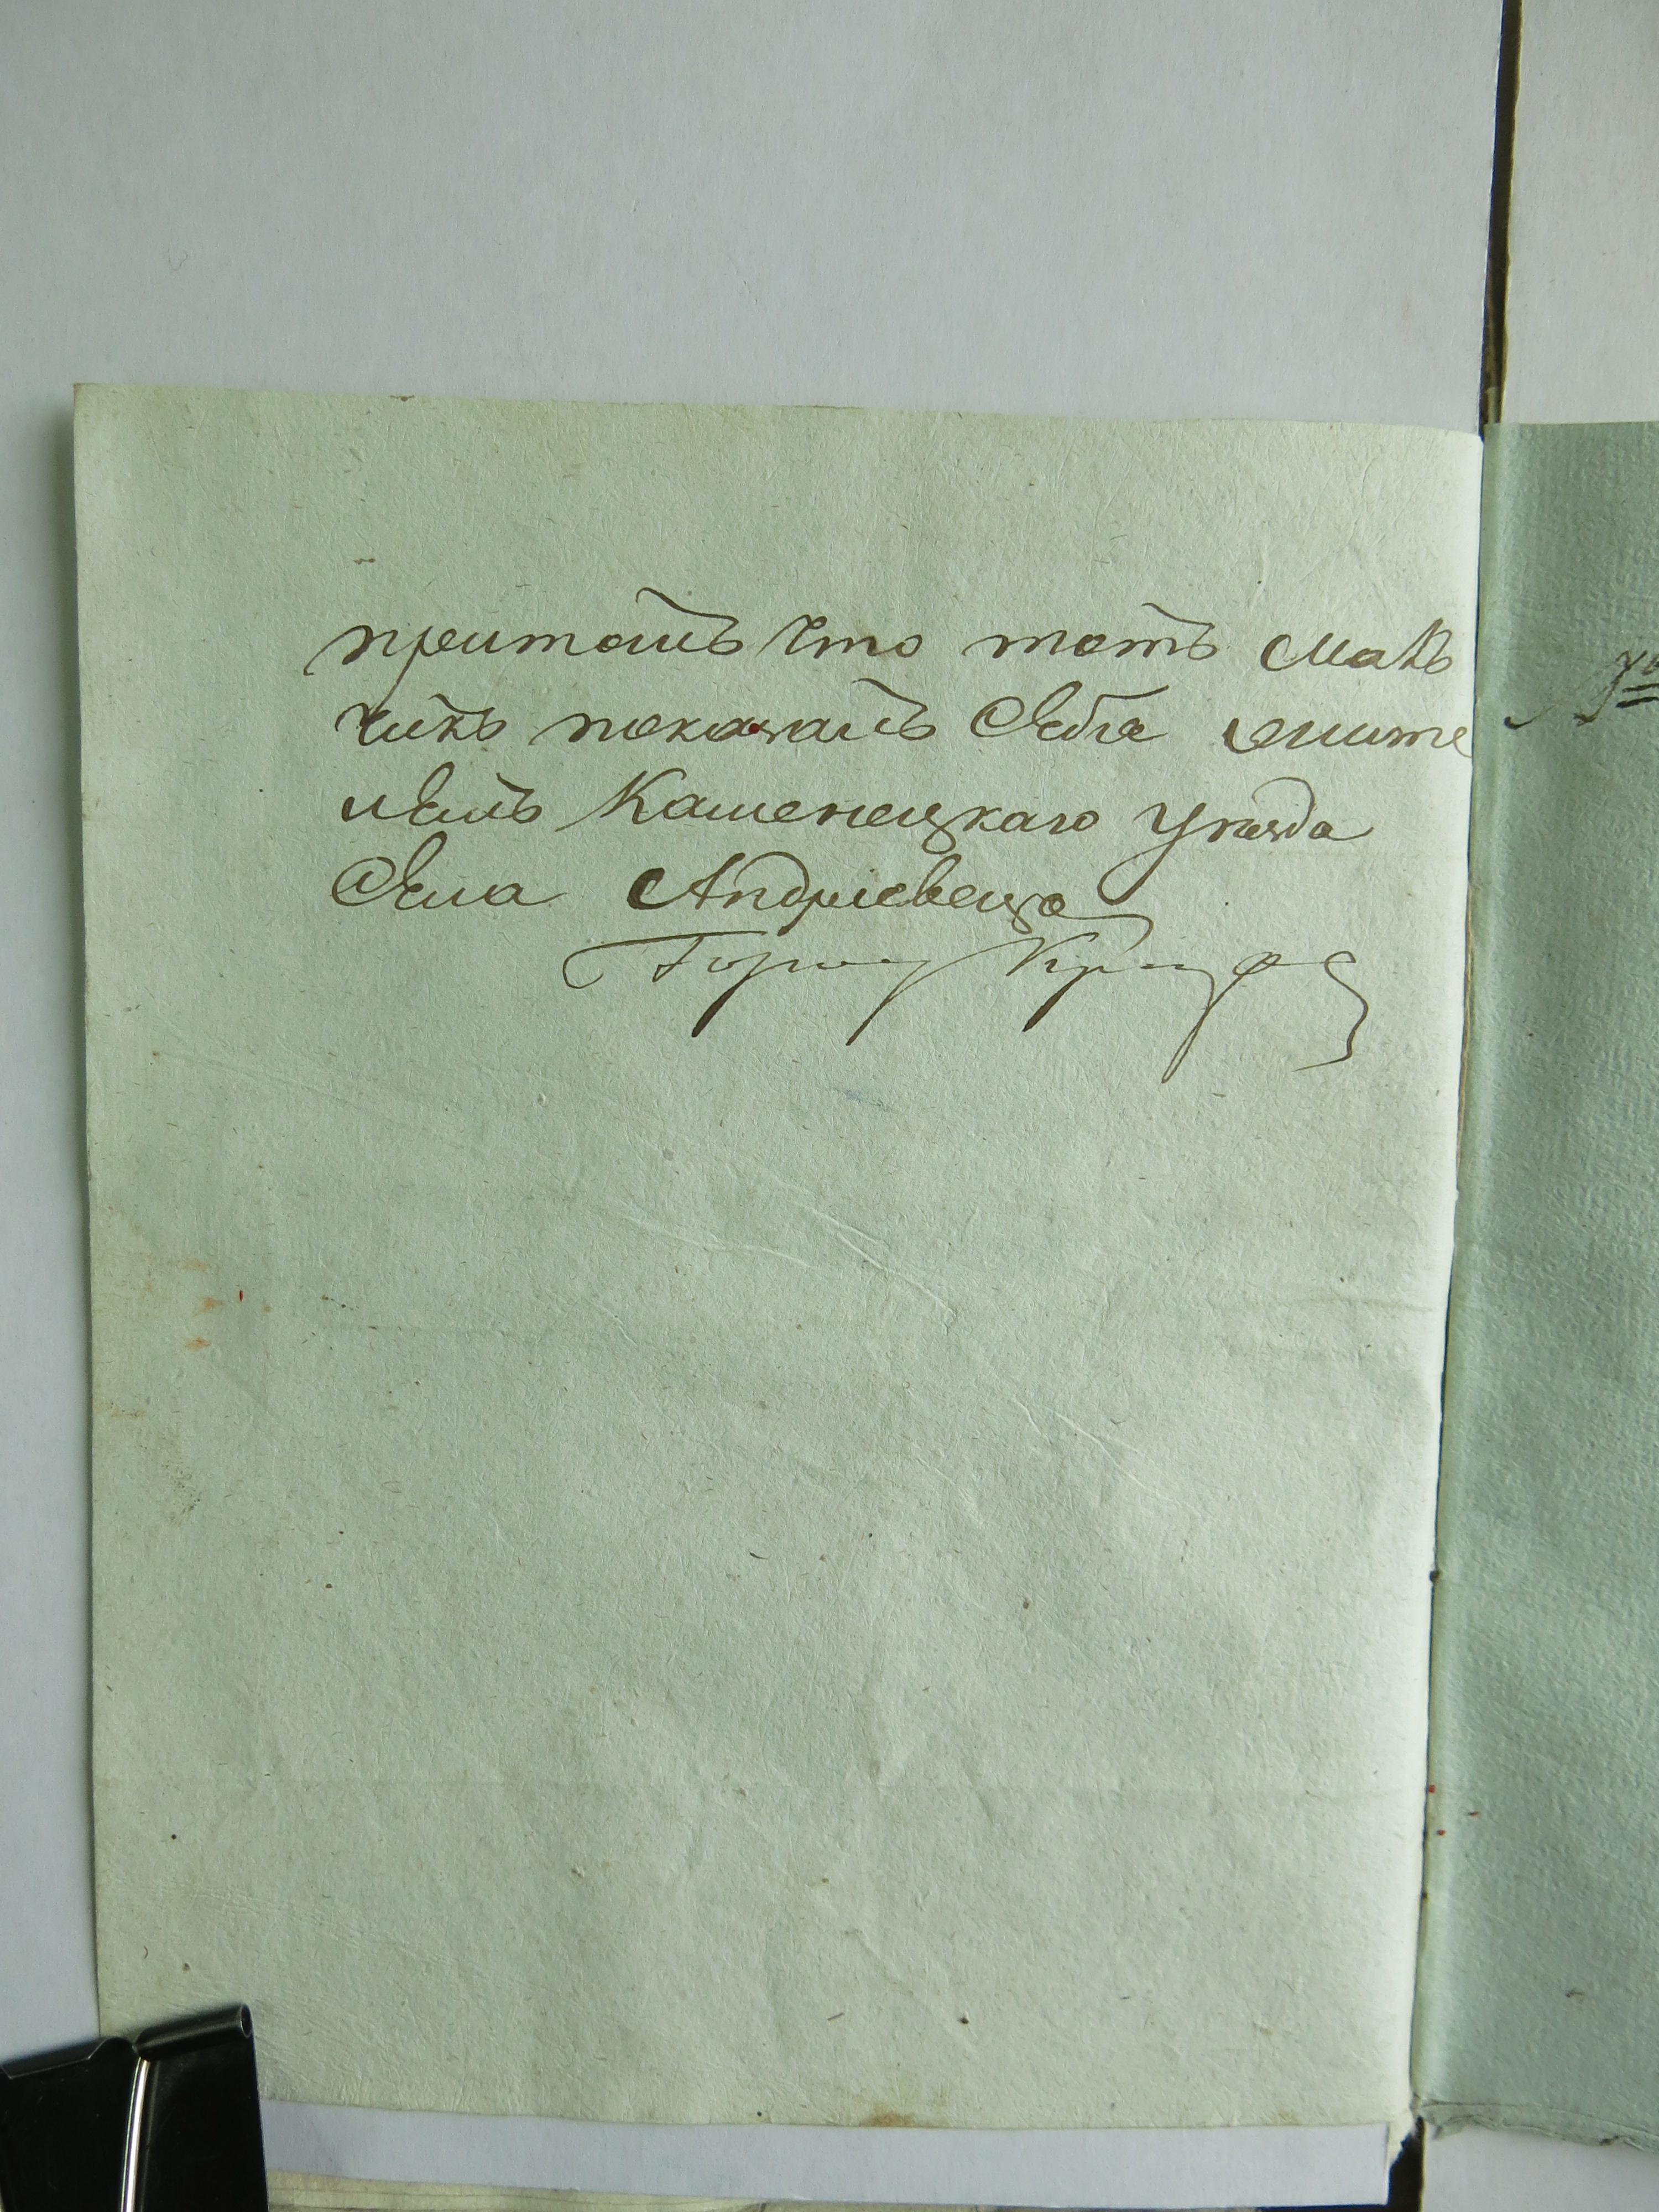 притомъ что тотъ Маль
чикъ показалъ Себя жите
лемъ Каменецкаго Уѣзда
Села Андріевець